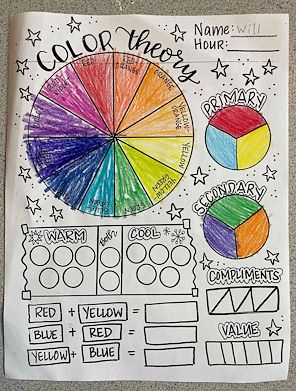 COLOR theory
Name: Will
Hour:
RED
RED ORANGE
ORANGE
YELLOW ORANGE
YELLOW
YELLOW GREEN
GREEN
BLUE GREEN
PRIMARY
SECONDARY
WARM
Both
COOL
COMPLIMENTS
RED + YELLOW =
BLUE + RED =
YELLOW + BLUE =
VALUE